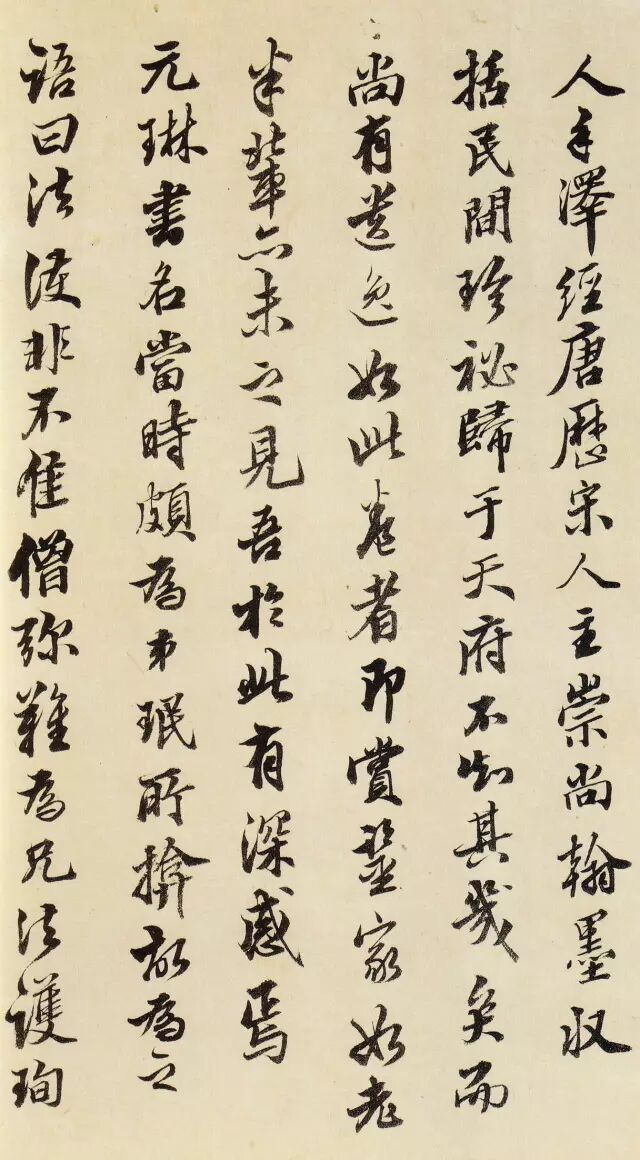 人手澤經唐歷宋人主崇尚翰墨收
括民間珍祕歸于天府不知其幾矣而
尚有遺逸如此卷者即賞鑒家如老
米輩亦未之見吾於此有深感焉
元琳書名當時頗為弟珉所揜故為之
語曰法護非不佳僧彌難為兄法護珣